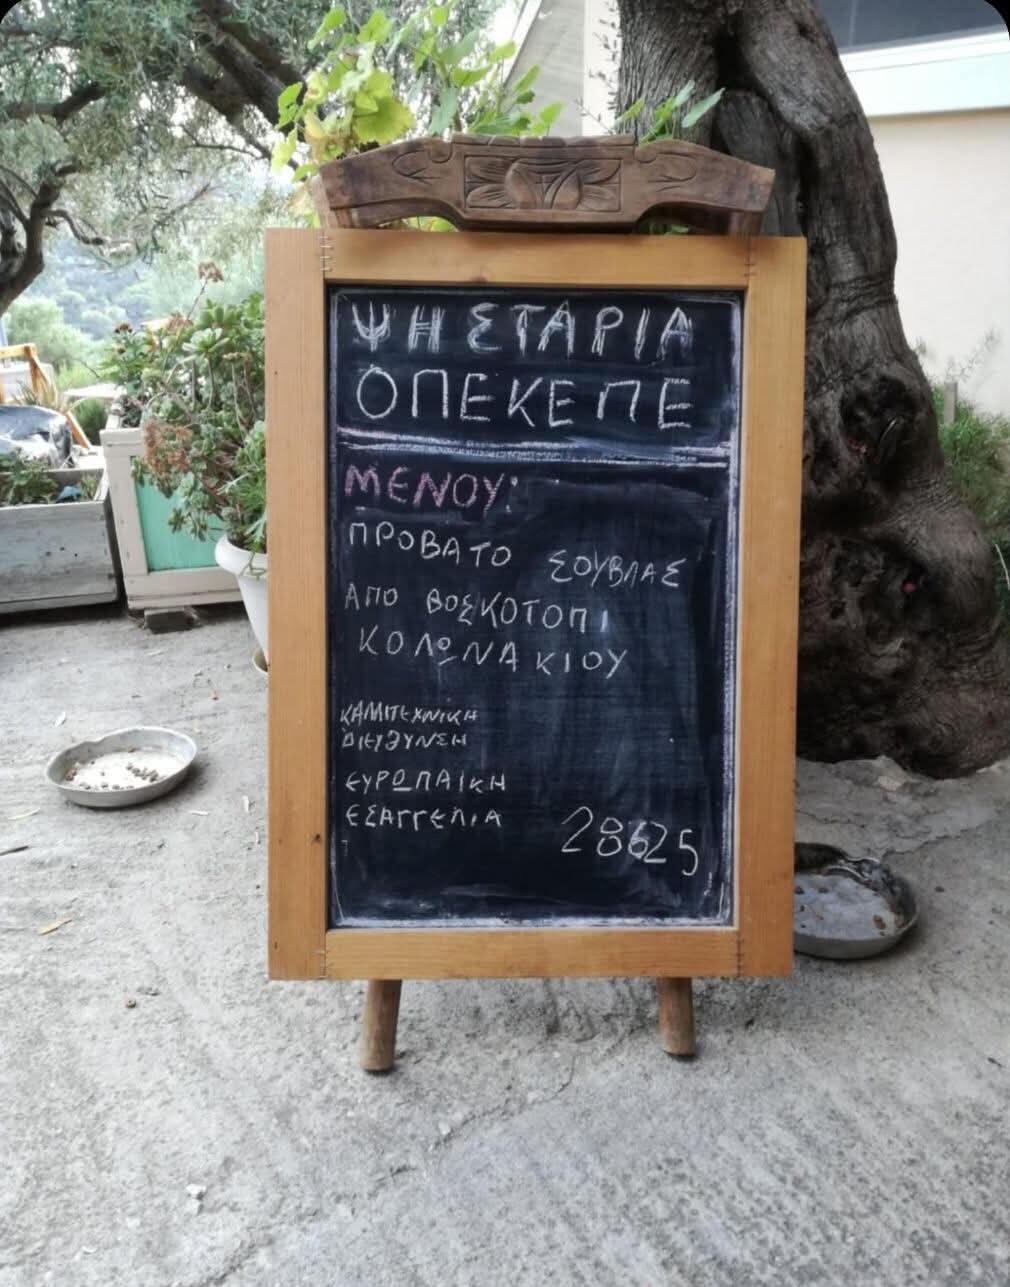 ΨΗΣΤΑΡΙΑ
ΟΠΕΚΕΠΕ
ΜΕΝΟΥ:
ΠΡΟΒΑΤΟ ΣΟΥΒΛΑΣ
ΑΠΟ ΒΟΣΚΟΤΟΠΙ
ΚΟΛΩΝΑΚΙΟΥ
ΚΑΛΛΙΤΕΧΝΙΚΗ
ΔΙΕΥΘΥΝΣΗ
ΕΥΡΩΠΑΙΚΗ
ΕΙΣΑΓΓΕΛΙΑ
28625